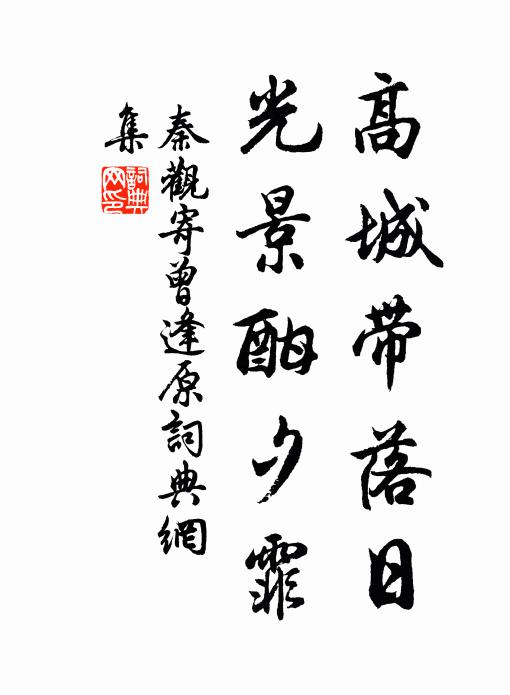 高城带落日
光景酣夕霏
秦觀寄曾逢原詞典網
集
詞典網印